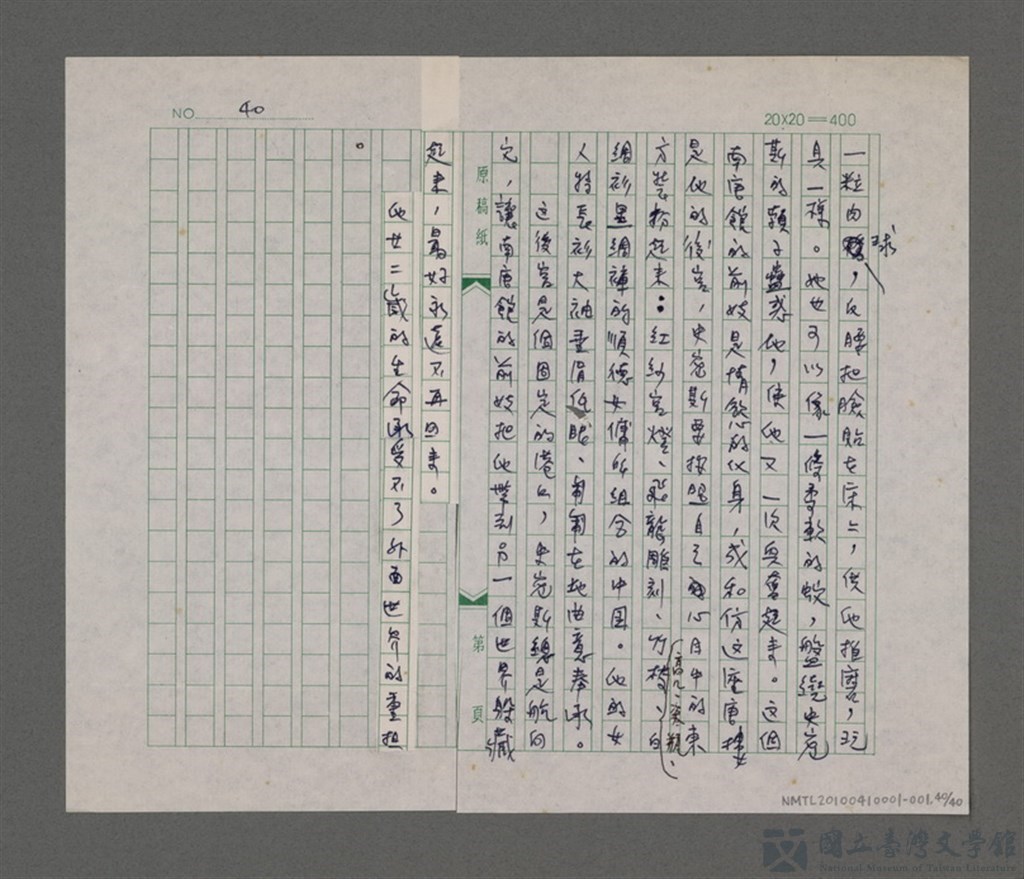 NO. 40
20X20=400
一粒肉球，反腰把臉貼在床上，供他推磨，玩
具一樣。她也可以像一條柔軟的蛇，盤繞史密
斯的頸子蠱惑他，使他又一次興奮起來。这個
南唐館的前妓是情慾的化身，成和仿这座唐樓
是他的後宮，史密斯要按照自己心目中的東
方裝扮起來：紅紗宮燈、飛龍雕刻、竹椅、高几、瓷瓶、白
綢衫黑綢褲的順德女傭所組合的中国。他的女
人將長衫大袖垂眉低眼、匍匐在地曲意奉承。
这後宮是個固定的港口，史密斯總是航向
它，讓南唐館的前妓把他帶到另一個世界躲藏
原稿紙 第 頁
起來，最好永遠不再回來。
他廿二歲的生命承受不了外面世界的重担
。
NMTL20100410001-001.40/40
國立臺灣文學館
National Museum of Taiwan Literature